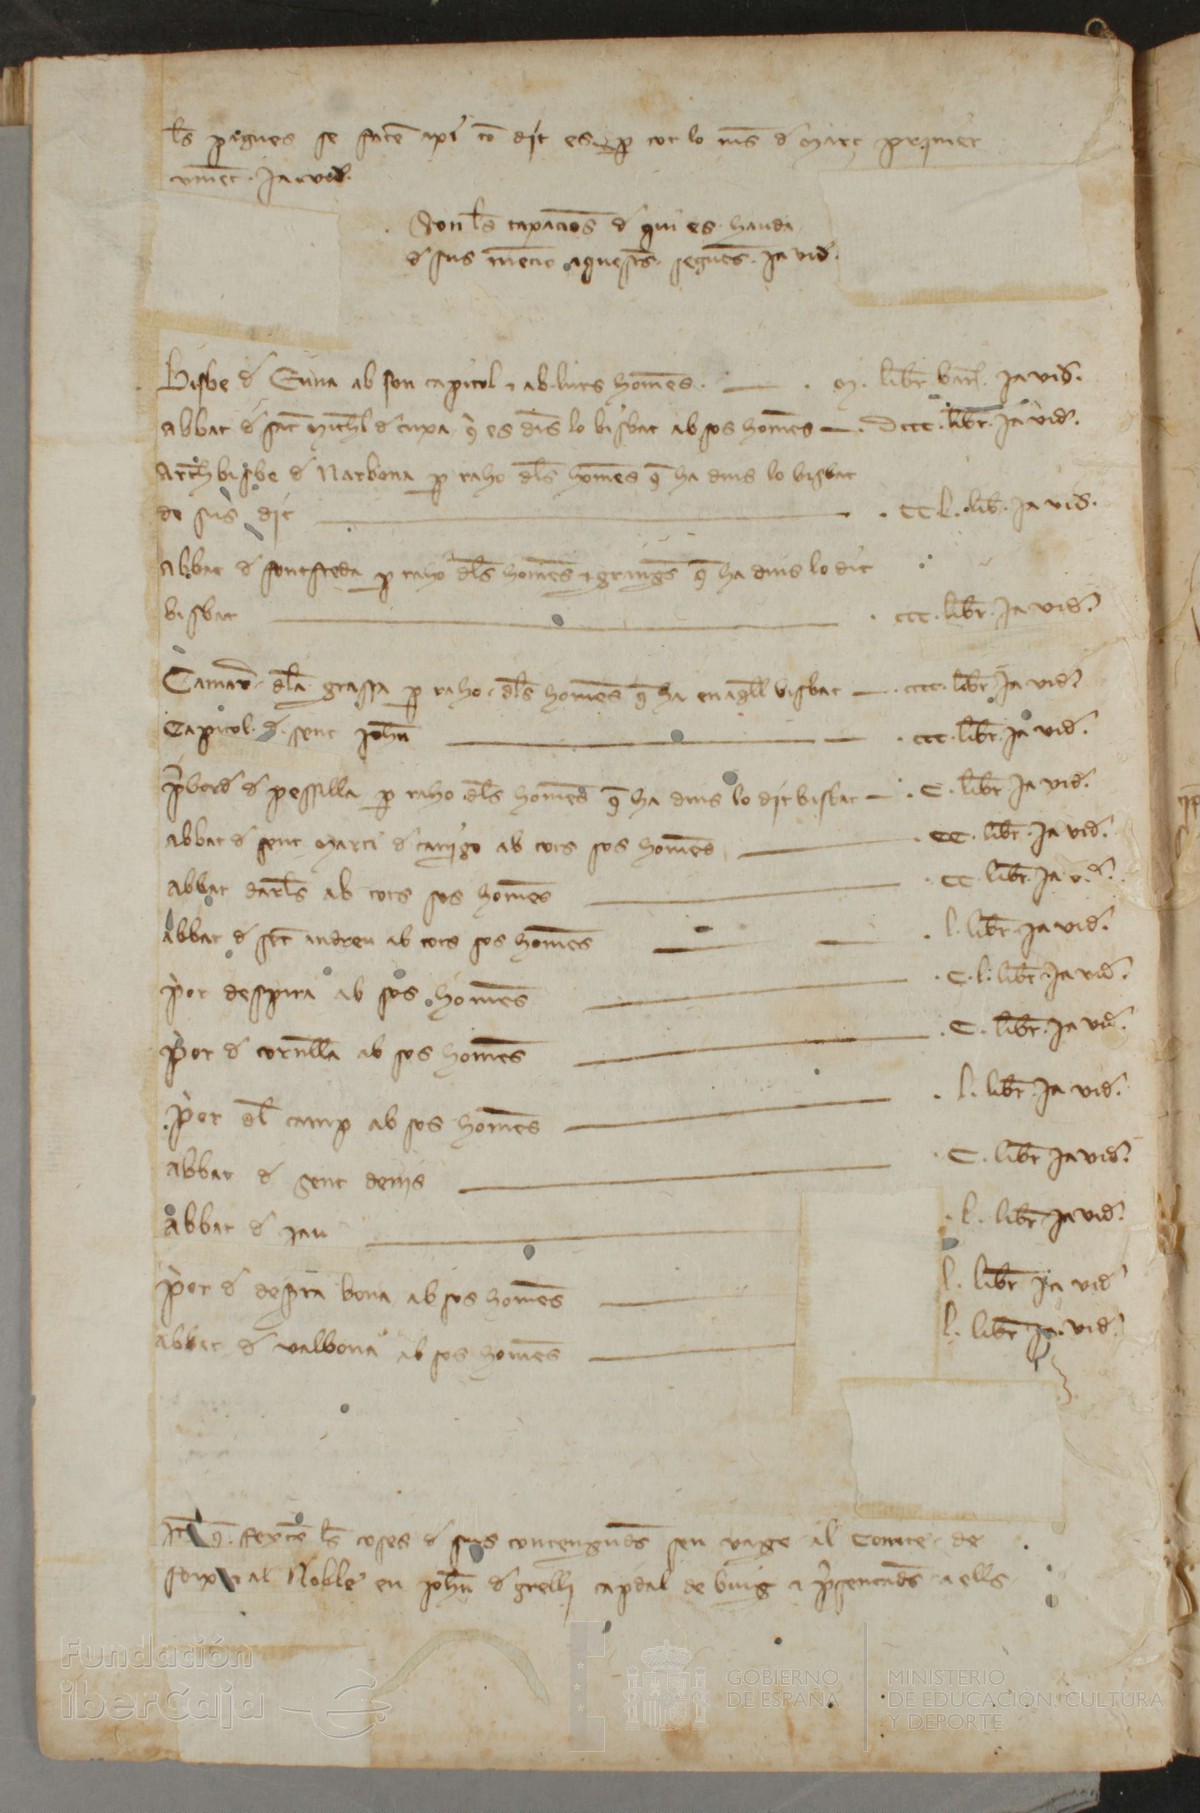 ls pagues se facen axi co dit es per tot lo mes de Març primer
vinent. Ja vid.
Son ls taxacions d qui es hauda
d sus mencio aquestes seguens. Ja vid.
Bisbe d Euna ab son capitol e ab lurs homens. M. libr. barch. Ja vid.
Abbat d sat Michel d Cuxa q es dins lo bisbat ab sos homens. Dccc. libr. Ja vid.
Archbisbe d Narbona p raho dls homens q ha dins lo bisbat
de sus dit CCL. lib. Ja vid.
Abbat d fontfreda p raho dls homens e granges q ha dins lo dit
bisbat ccc. libr. Ja vid.
Camarer dla grassa p raho dls homens q ha en aqll bisbat ccc. libr. Ja vid.
Capitol d sent Johan ccc. libr. Ja vid.
d pessilla p raho dls homens q ha dins lo dit bisbat C. libr. Ja vid.
abbat d sent Marti d canigo ab tots sos homens CC. libr. Ja vid.
abbat darls ab tots sos homens CC. libr. Ja vid.
abbat d sent andreu ab tots sos homens l. libr. Ja vid.
Pior despira ab sos homens C.l. libr. Ja vid.
Pior d cornella ab sos homens C. libr. Ja vid.
Pior dl camp ab sos homens l. libr. Ja vid.
abbat d sent denis C. libr. Ja vid.
abbat d Jau l. libr. Ja vid.
Pior d bona ab sos homens l. libr. Ja vid.
abbat d valbona ab sos homens l. libr. Ja vid.
Itm q. fetes ls coses d sus contengudes sen vage al Comte de
foix e al Noble en Johan d grelli capdal de buig e presentades a ells
Fundación
iberCaja
GOBIERNO
DE ESPAÑA
MINISTERIO
DE EDUCACIÓN, CULTURA
Y DEPORTE